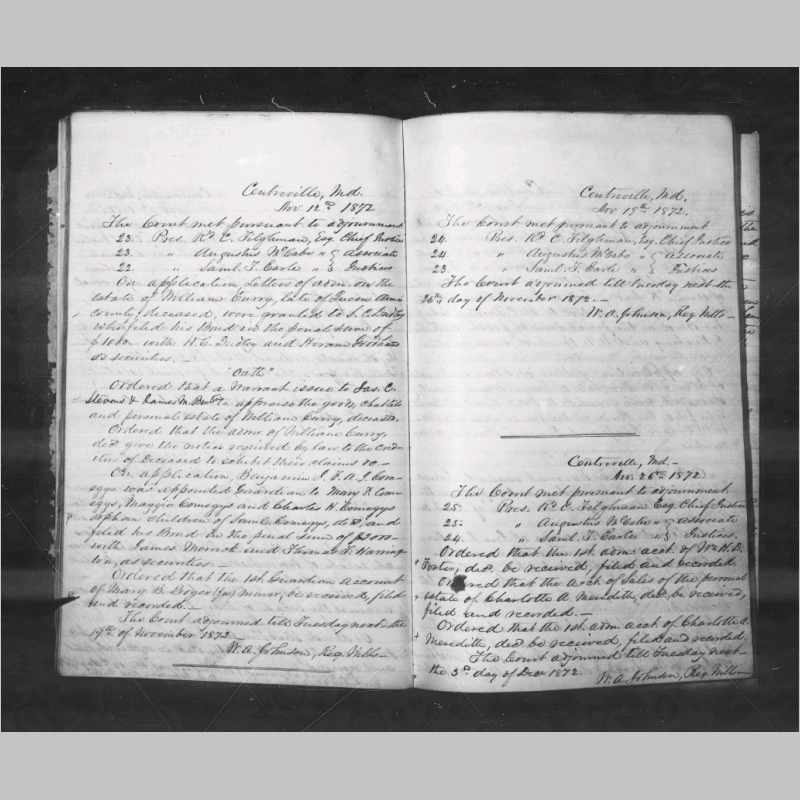 Centreville, Md.
Nov 12th 1872
The Court met pursuant to adjournment
23. Pres. Rd. C. Tilghman, Esq. Chief Justice
23. " Augustus McCabe " & associate
22. " Saml. T. Earle " & Justices
On application, Letters of adm. on the
estate of William Curry, late of Queen Ann's
county, deceased, were granted to
who filed his Bond in the penal sum of
with W. C. and Hiram
as securities. —
"Oath"
Ordered that a warrant issue to Jas. C.
Stevens & James M. to appraise the goods, chattels
and personal estate of William Curry, deceased.
Ordered that the admr. of William Curry,
decd. give the notice required by law to the cred-
itors of Deceased to exhibit their claims &c—
On application, Benjamin S. F. A. J. Com-
egys was appointed Guardian to Mary F. Com-
egys, Maggie Comegys and Charles H. Comegys
orphan children of Saml. Comegys, decd., and
filed his Bond in the penal sum of
with James Merrick and Thomas F. Harring-
ton, as securities.—
Ordered that the 1st Guardian Account
of Mary B. (Jr.) minor, be received, filed
and recorded.—
The Court adjourned till Tuesday next the
19th of November 1872—
W. A. Johnson, Reg. Wills—
Centreville, Md.,
Nov 19th 1872.
The Court met pursuant to adjournment
24. Pres. Rd. C. Tilghman, Esq. Chief Justice
24. " Augustus McCabe " & associate
23. " Saml. T. Earle " & Justices
The Court adjourned till Tuesday next the
26th day of November 1872.—
W. A. Johnson, Reg. Wills—
Centreville, Md.—
Nov. 26th 1872
The Court met pursuant to adjournment
25. Pres. Rd. C. Tilghman Esq. Chief Justice
25. " Augustus McCabe " & associate
24. " Saml. T. Earle " & Justices.
Ordered that the 1st adm. acct. of Wm. H. D.
decd. be received, filed and recorded
Ordered that the acct. of Sales of the personal
estate of Charlotte A. Meredith, decd. be received,
filed and recorded.—
Ordered that the 1st. adm acct of Charlotte A.
Meredith, decd be received, filed and recorded
The Court adjourned till Tuesday next
the 3d. day of Decr 1872.
W. A. Johnson, Reg. Wills—